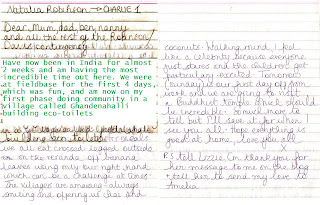 Natalia Robinson → CHARLIE 1
Dear, Mum, dad, ben, nanny
and all the rest of the Robinson/
Davis contingent,
Have now been in India for almost
2 weeks and am having the most
incredible time out here. We were
at fieldbase for the first 4 days,
which was fun, and am now on my
first phase doing community in a
village called Ghandenahalli
building eco-toilets
building eco-toilets
we all eat crossed legged outside
on the veranda, off banana
leaves using only our right hand
which can be a challenge at times.
The villagers are amazing - always
smiling and offering us chai and
coconuts. Walking round I feel
like a celebrity because everyone
just stares and the children get
particularly excited. Tomorrow
(Sunday) is our first day off from
work and we are going to visit
a Buddhist temple which should
be incredible. So much more to
tell but I'll save it for when I
see you all. Hope everything is
good at home, love you all
P.S tell Lizzie, Em thank you for
their message to me on the blog
+ tell her to send my love to
Amelia